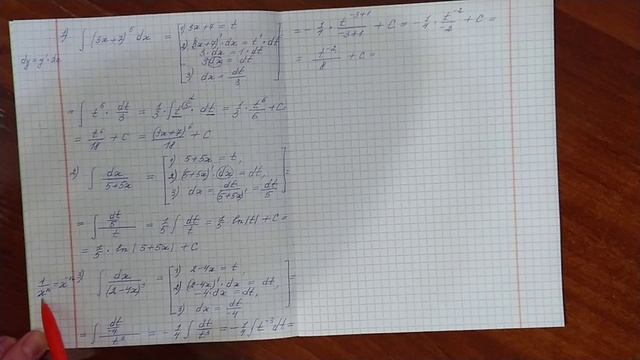 1) ∫ (3x+7)⁵ dx = [ 1) 3x+7 = t
2) (3x+7)' · dx = t' · dt
3 · dx = 1 · dt
3dx = dt
3) dx = dt/3 ]
dy = y' · dx
= ∫ t⁵ · dt/3 = 1/3 · ∫ t⁵ · dt = 1/3 · t⁶/6 + C =
= t⁶/18 + C = (3x+7)⁶/18 + C
2) ∫ dx/(5+5x) = [ 1) 5+5x = t,
2) (5+5x)' · dx = dt,
3) dx = dt/(5+5x)' = dt/5 ] =
= ∫ (dt/5)/t = 1/5 ∫ dt/t = 1/5 · ln|t| + C =
= 1/5 · ln|5+5x| + C
1/xⁿ = x⁻ⁿ
3) ∫ dx/(2-4x)³ = [ 1) 2-4x = t,
2) (2-4x)' · dx = dt,
-4 · dx = dt,
3) dx = dt/-4 ] =
= ∫ (dt/-4)/t³ = -1/4 ∫ dt/t³ = -1/4 ∫ t⁻³ dt =
= -1/4 · t⁻³⁺¹/(-3+1) + C = -1/4 · t⁻²/-2 + C =
= t⁻²/8 + C =